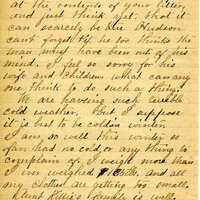 at the contents of your letter,
and just think yet. that it
can scarcely be the Hudson
cant forget it. he too thinks the
man must have been out of his
mind. I feel so sorry for his
wife and children. what can any
one think to do such a thing.
We are having such terrible
cold weather, but I suppose
it is best to be cold in winter
I am so well this winter so
far had no cold, or any thing to
complain of. I weigh more than
I ever weighed and all
my clothes are getting too small.
Aunt is well.